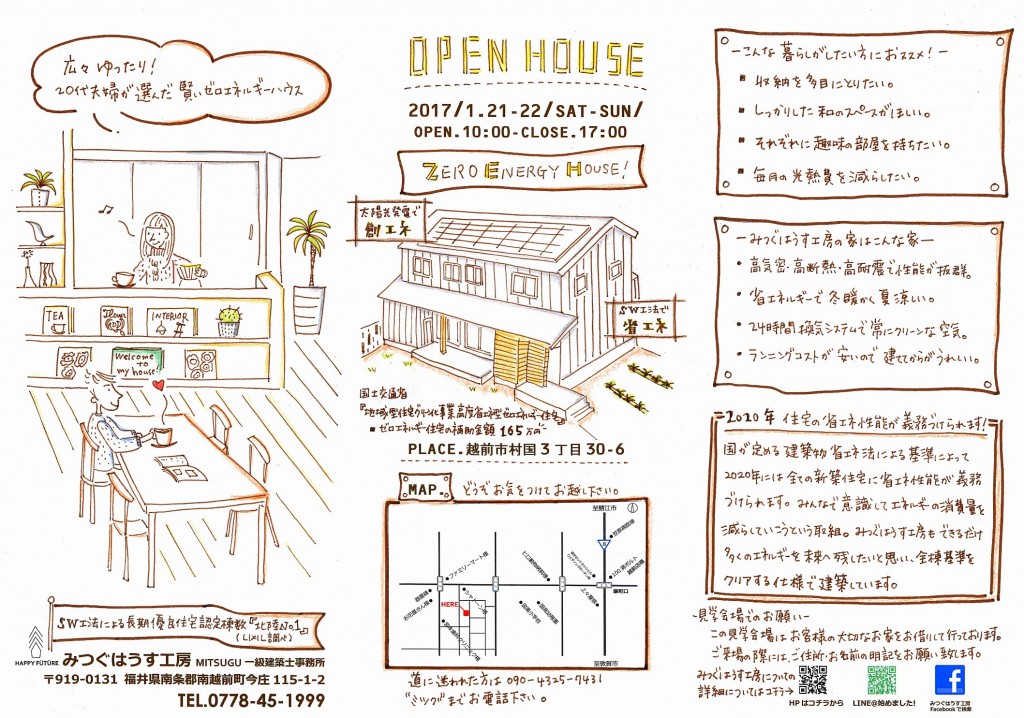 広々ゆったり!
20代夫婦が選んだ賢いゼロエネルギーハウス
TEA
INTERIOR
Welcome
to
my house!
SW工法による長期優良住宅認定棟数『北陸No.1』
(LIXIL調べ)
HAPPY FUTURE
みつぐはうす工房 MITSUGU 一級建築士事務所
〒919-0131 福井県南条郡南越前町今庄 115-1-2
TEL.0778-45-1999
OPEN HOUSE
2017/1.21-22/SAT-SUN/
OPEN.10:00-CLOSE.17:00
ZERO ENERGY HOUSE!
太陽光発電で
創エネ
SW工法で
省エネ
国土交通省
『地域型住宅グリーン化事業高度省エネ型ゼロエネルギー住宅』
■ ゼロエネルギー住宅の補助金額 165万円
PLACE.越前市村国3丁目30-6
MAP. どうぞお気をつけてお越し下さい。
至鯖江市
8
ファミリーマート様
HERE
塚町口
至敦賀市
道に迷われた方は 090-4325-7431
"ミツグ"までお電話下さい。
ーこんな暮らしがしたい方におススメ!ー
■ 収納を多目にとりたい。
■ しっかりした和のスペースがほしい。
■ それぞれに趣味の部屋を持ちたい。
■ 毎月の光熱費を減らしたい。
ーみつぐはうす工房の家はこんな家ー
・高気密・高断熱・高耐震で性能が抜群。
・省エネルギーで冬暖かく夏涼しい。
・24時間換気システムで常にクリーンな空気。
・ランニングコストが安いので建ててからがうれしい。
2020年 住宅の省エネ性能が義務づけられます!
国が定める建築物省エネ法による基準によって
2020年には全ての新築住宅に省エネ性能が義務
づけられます。みんなで意識してエネルギーの消費量を
減らしていこうという取組。みつぐはうす工房もできるだけ
多くのエネルギーを未来へ残したいと思い、全棟基準を
クリアする仕様で建築しています。
-見学会場でのお願い-
この見学会場はお客様の大切なお家をお借りして行っております。
ご来場の際には、ご住所・お名前の明記をお願い致します。
みつぐはうす工房についての
詳細についてはコチラ→
HPはコチラから
LINE@始めました!
みつぐはうす工房
Facebookで検索